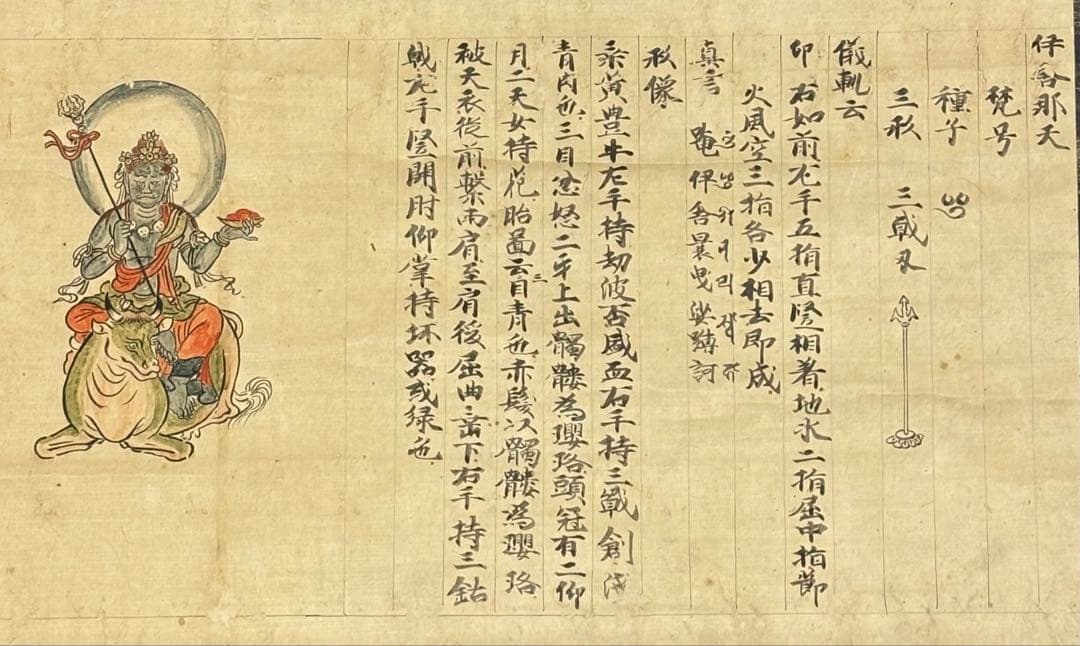 伊舎那天
梵号
種子
三形 三戟叉
儀軌云
印 右如前左手五指直竪相著地水二指屈中指節
火風空三指各少相去即成
真言 唵伊舎曩曳娑嚩訶
形像
乗黄豊牛左手持劫波盃盛血右手持三戟創浅
青肉色三目忿怒二牙上出髑髏為瓔珞頭冠有二仰
月二天女持花胎啚云自三青色赤髪以髑髏為瓔珞
被天衣後前繋両肩至肩後屈曲垂下右手持三鈷
戟左手竪開肘仰掌持坏器或緑色